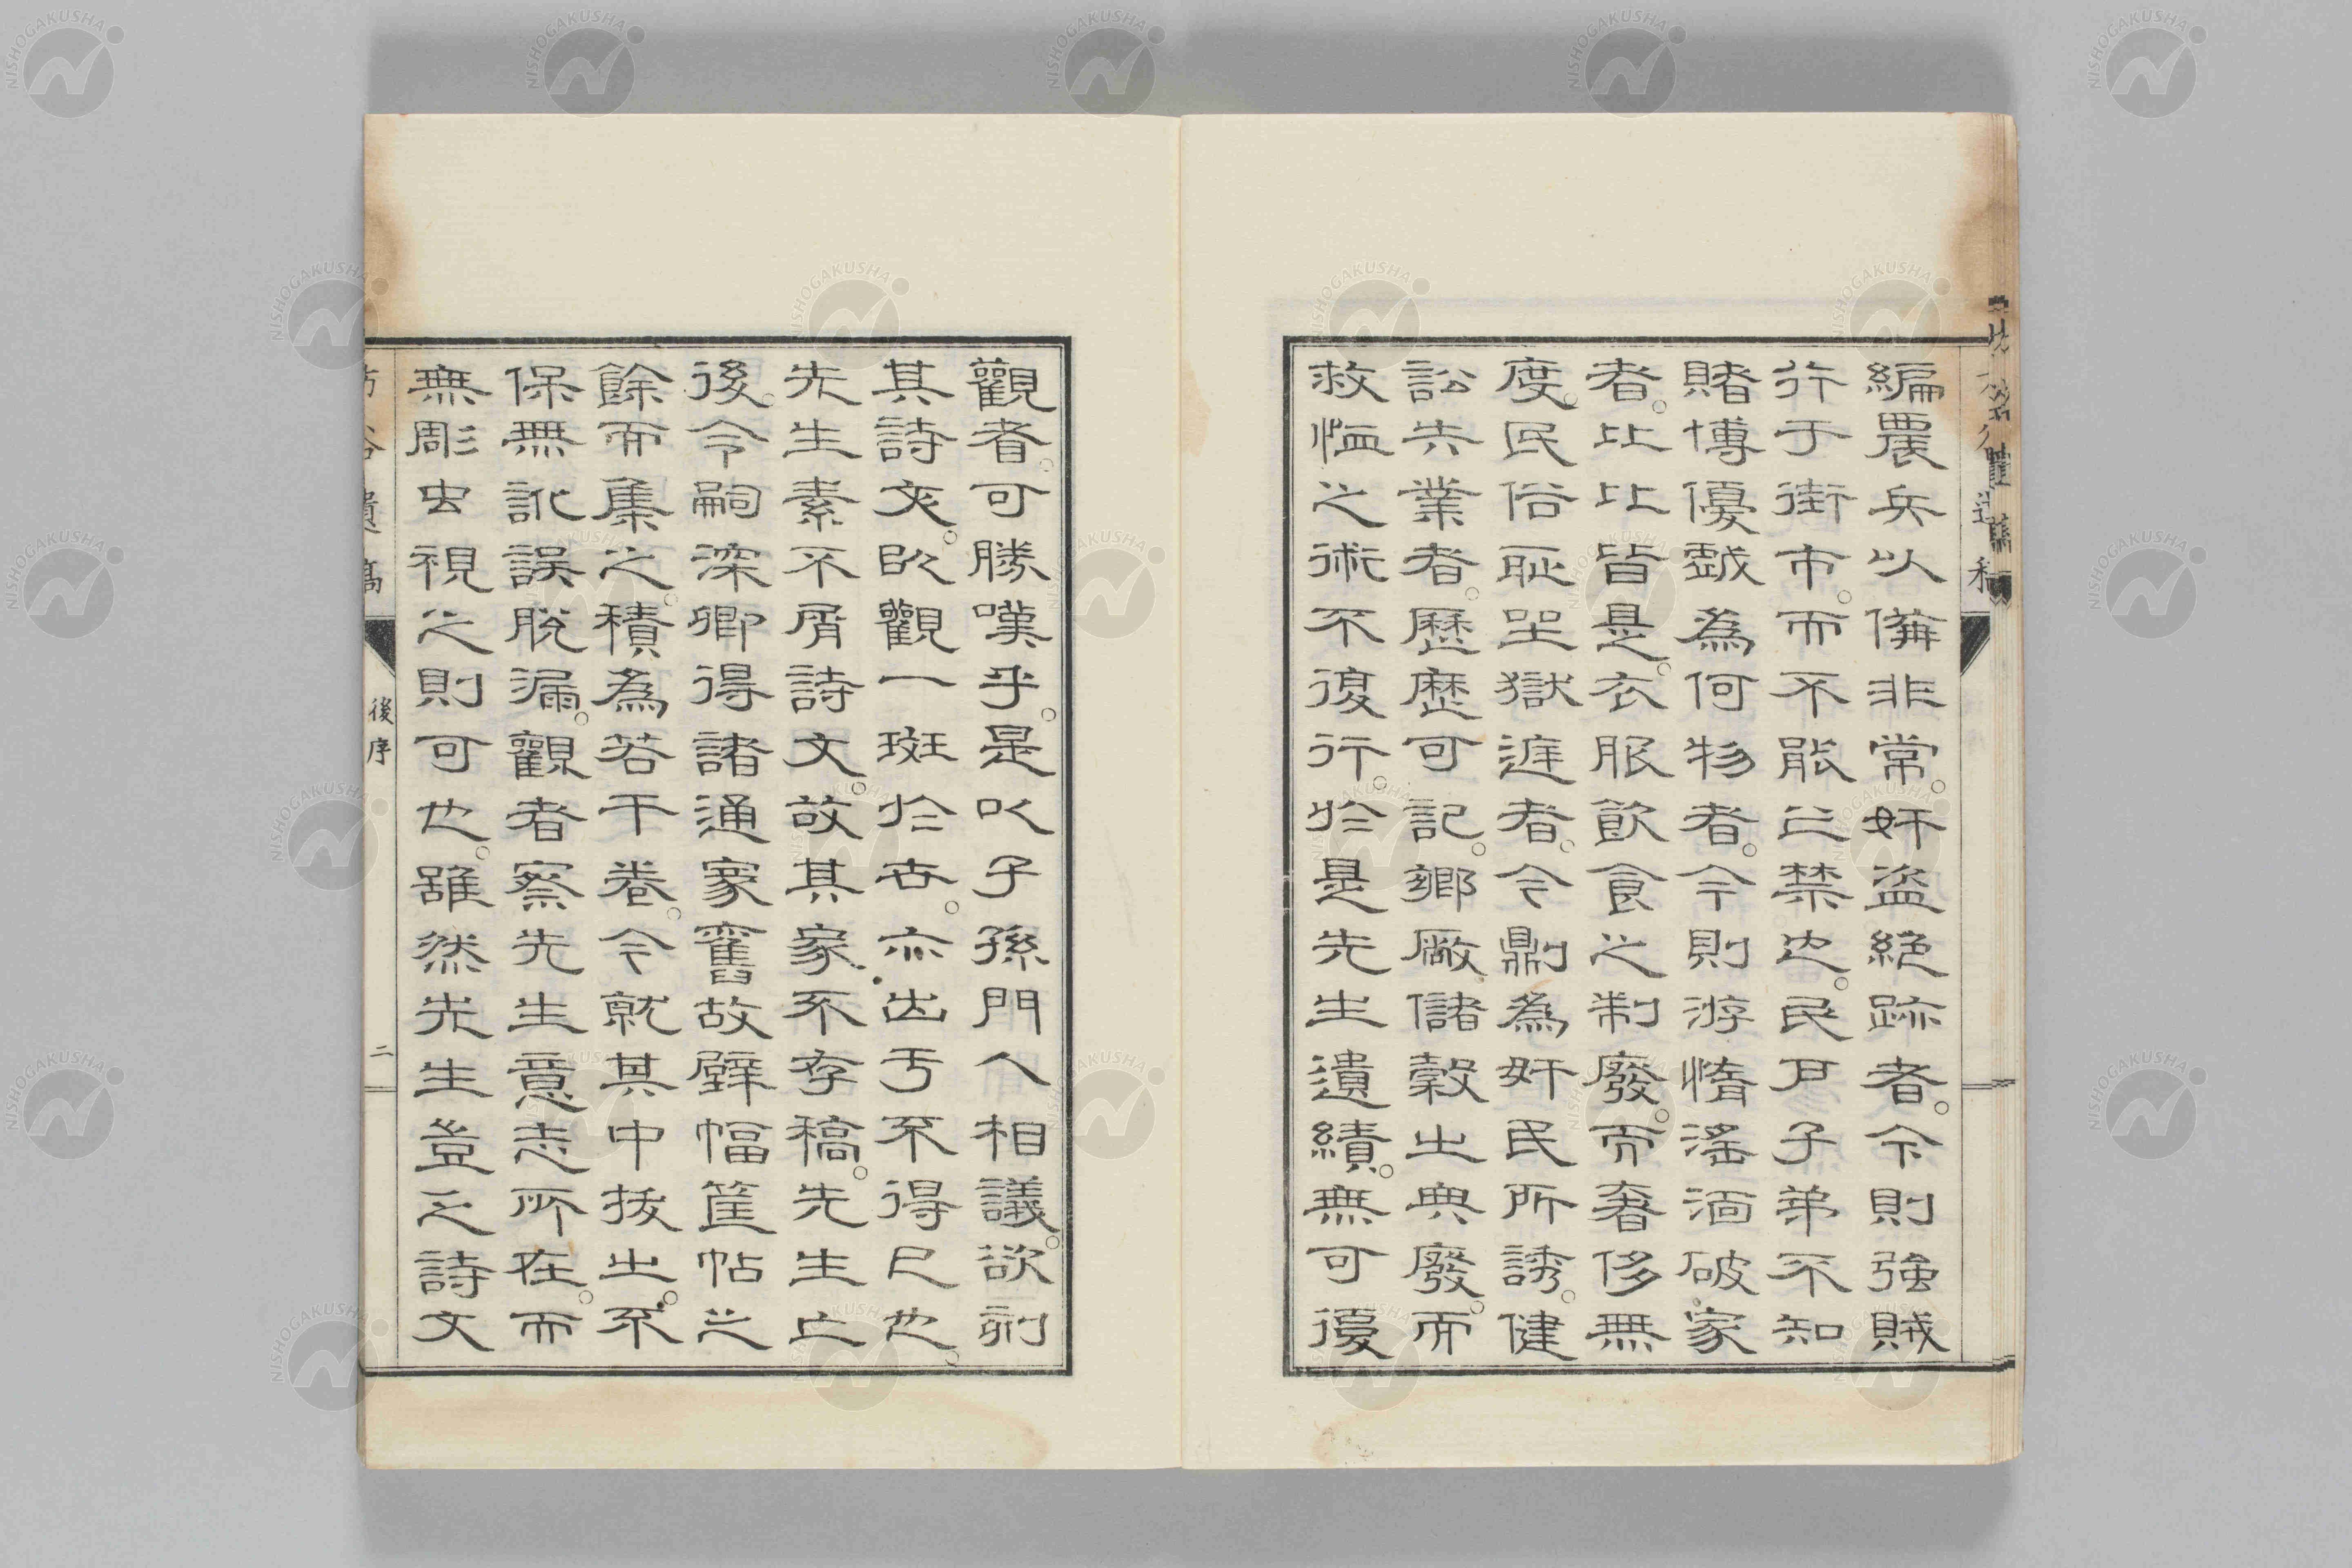 編農兵以備非常。奸盜絕跡者。今則強賊
行于街市。而不能亡禁也。民戶子弟不知
賭博優戲為何物者。今則游惰淫湎破家
者。比比皆是。衣服飲食之制廢。而奢侈無
度。民俗恥坐獄遅者。今剿為奸民所誘。健
訟失業者。歷歷可記。鄉廠儲穀之典廢。而
救恤之術不復行。於是先生遺績。無可復
觀者。可勝嘆乎。是以子孫門人相議。欲刻
其詩文。以觀一斑於世。亦出于不得已也。
先生素不屑詩文。故其家不存稿。先生亡
後。令嗣深卿得諸通家舊故壁幅筐帖之
餘而集之。積為若干卷。今就其中拔出。不
保無訛誤脫漏。觀者察先生意志所在。而
無彫虫視之則可也。雖然先生豈乏詩文
後序
二